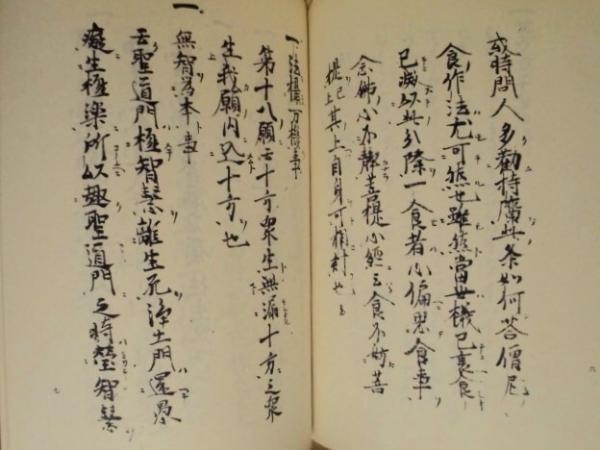 或時問人多勸持齋此条如何答僧尼
食作法尤可然也雖然當世機已衰食
已減以此分際一食者心偏思食事
念佛心不靜菩提心經云食不妨菩
提已上其上自身可相計也
一法攝万機事
第十八願云十方衆生無漏十方之衆
生我願内込十方也
一
無智爲本事
云聖道門極智慧離生死浄土門還愚
癡生極楽所以趣聖道門之時瑩智慧